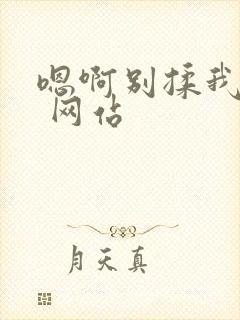 嗯啊别揉我
网佔
月天真